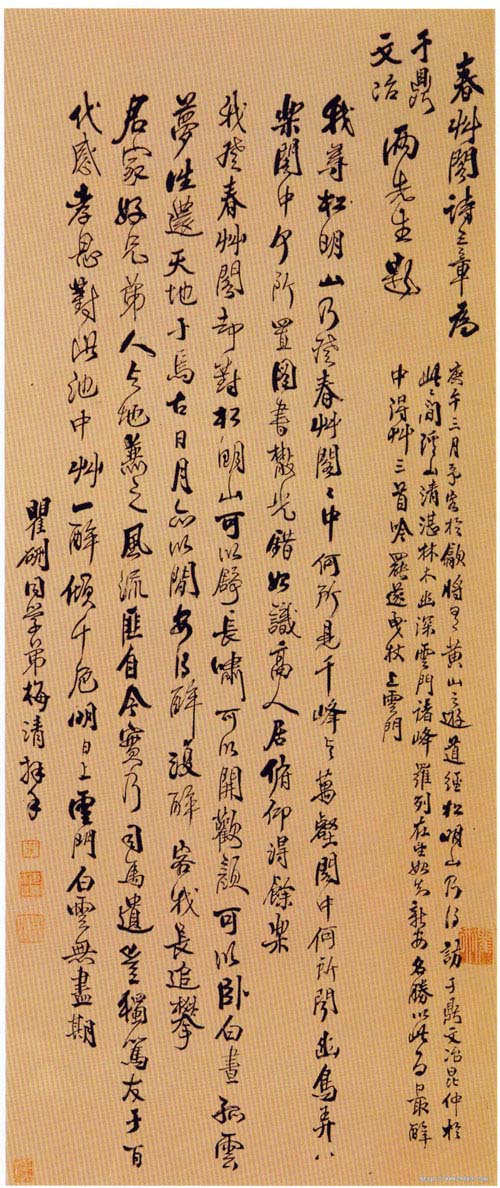 春艸閣詩三章為
于鼎
文冶
兩先生題
庚午三月予客於歙將為黃山之遊道經松明山乃得訪于鼎文冶昆仲於
此間溪山清湛林木幽深雲門諸峰羅列在坐如失新安名勝以此為最醉
中得艸三首吟罷遂曳杖上雲門
我尋松明山乃登春艸閣〻中何所見千峰與萬壑閣中何所聞幽鳥弄八
樂閣中何所置圖書散光錯始識高人居俯仰得餘樂
我登春艸閣却對松明山可以舒長嘯可以開歡顏可以臥白晝孤雲
夢往還天地于焉古日月亦以閒安得醉復醉容我長追攀
君家好兄弟人與地兼之風流匪自今實乃司馬遺豈獨篤友于百
代感孝思對池中艸一醉傾千卮明日上雲門白雲無盡期
瞿硎同學弟梅清拜手